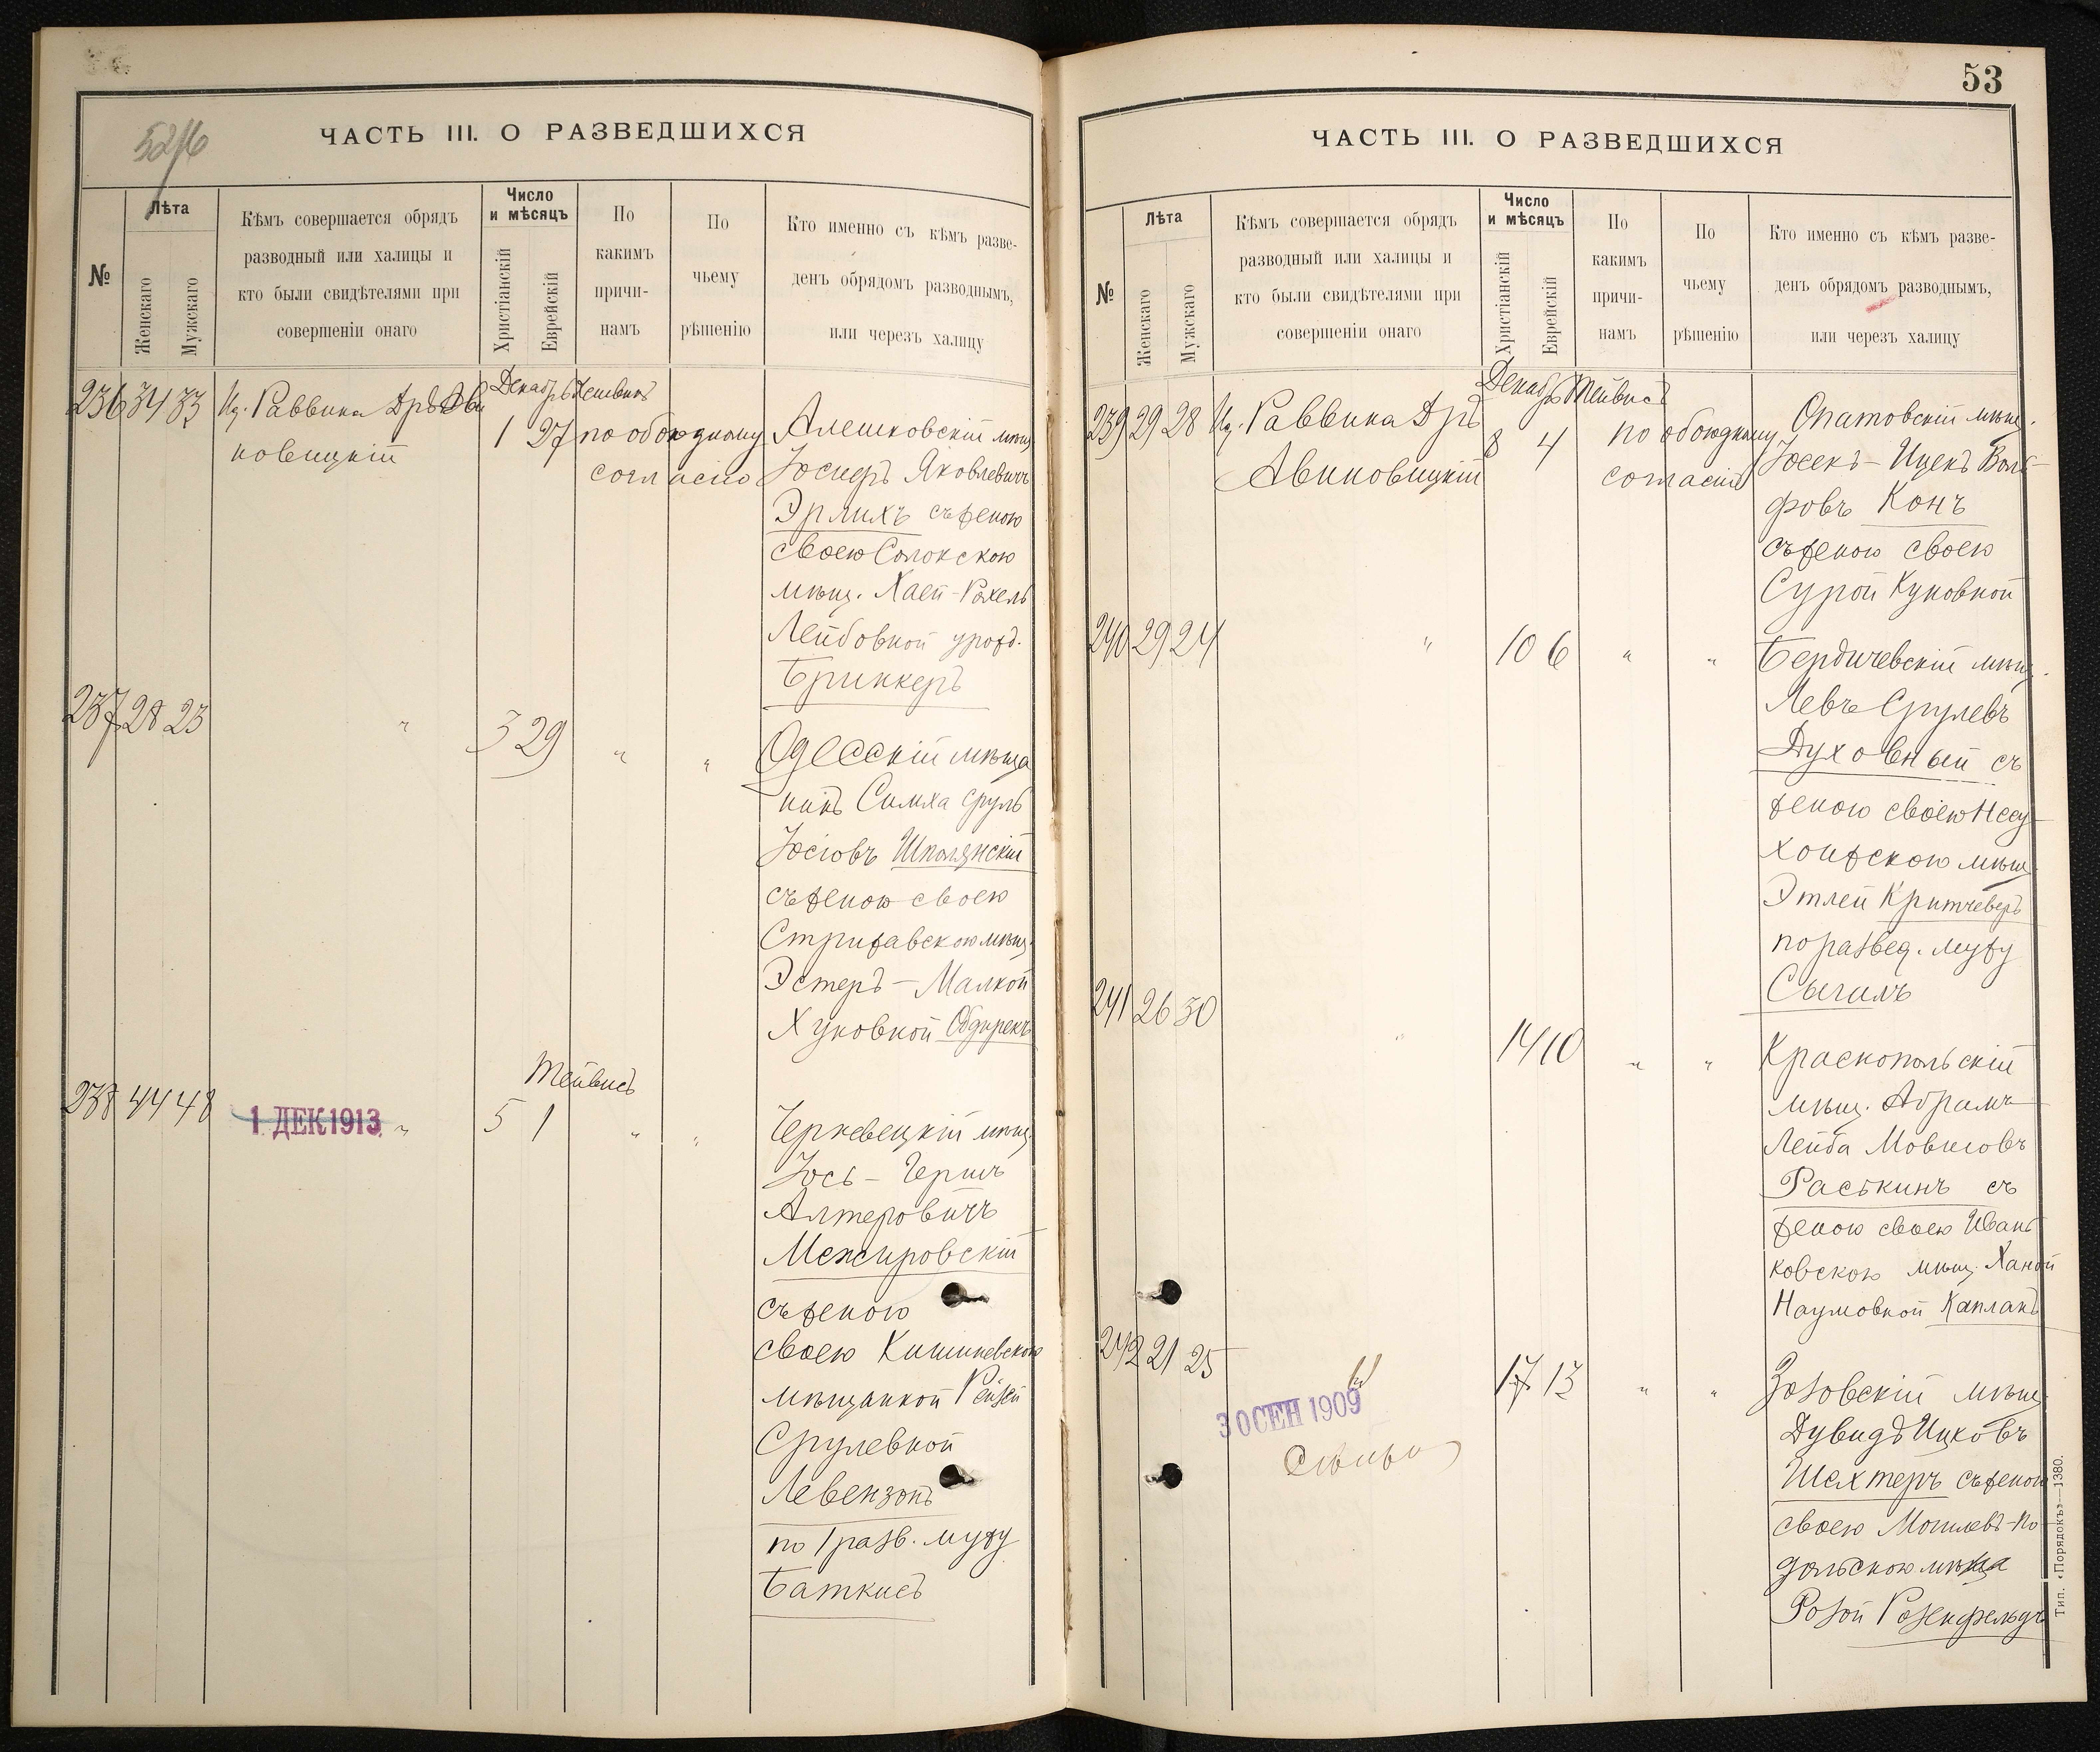 52/б
ЧАСТЬ III. О РАЗВЕДШИХСЯ
№
Лѣта
Женскаго
Мужскаго
Кѣмъ совершается обрядъ
разводный или халицы и
кто были свидѣтелями при
совершеніи онаго
Число
и мѣсяцъ
Христіанскій
Еврейскій
По
какимъ
причи-
намъ
По
чьему
рѣшенію
Кто именно съ кѣмъ разве-
денъ обрядомъ разводнымъ,
или черезъ халицу
236 34 33 Иц. Раввина Дръ Ави
новицкій
Декабрь Хешвинъ
1 27 по обоюдному
согласію
Алешковскій мѣщ.
Іосифъ Яковлевичъ
Эрлихъ съ женою
своею Солокскою
мѣщ. Хаей-Рохель
Лейбовной урожд.
Бринкеръ
237 28 23 " 3 29 " "
Одесскій мѣща
нинъ Симха Сруль
Іосіовъ Шполянскій
съ женою своею
Стрижавскою мѣщ.
Эстеръ-Малкой
Хуновной
Тейвисъ
238 44 48 " 5 1 " "
1 ДЕК 1913
Черневецкій мѣщ.
Іось-Гершъ
Алтеровичъ
Межировскій
съ женою
своею Кишиневскою
мѣщанкой Рейзей
Срулевной
Левензонъ
по 1 разв. мужу
Баткисъ
53
ЧАСТЬ III. О РАЗВЕДШИХСЯ
№
Лѣта
Женскаго
Мужскаго
Кѣмъ совершается обрядъ
разводный или халицы и
кто были свидѣтелями при
совершеніи онаго
Число
и мѣсяцъ
Христіанскій
Еврейскій
По
какимъ
причи-
намъ
По
чьему
рѣшенію
Кто именно съ кѣмъ разве-
денъ обрядомъ разводнымъ,
или черезъ халицу
239 29 28 Иц. Раввина Дръ
Авиновицкій
Декабрь Тейвисъ
8 4 по обоюдному
согласію
Опатовскій мѣщ.
Іосекъ-Ицекъ Воль-
фовъ Конъ
съ женою своею
Сурой Куновной
240 29 24 " 10 6 " "
Бердичевскій мѣщ.
Левъ Срулевъ
Духовный съ
женою своею Несу-
хоижскою мѣщ.
Этлей Критчеверъ
по развед. мужу
Сыгалъ
241 26 30 " 14 10 " "
Краснопольскій
мѣщ. Абрамъ
Лейба Мовшовъ
Раськинъ съ
женою своею Ивань
ковскою мѣщ. Ханой
Наумовной Капланъ
242 21 25 " 17 13 " "
30 СЕН 1909
Зозовскій мѣщ.
Дувидъ Ицковъ
Шехтеръ съ женою
своею Могилевъ-По-
дольскою мѣща
Розой Розенфельдъ
Тип. «Порядокъ»—1380.